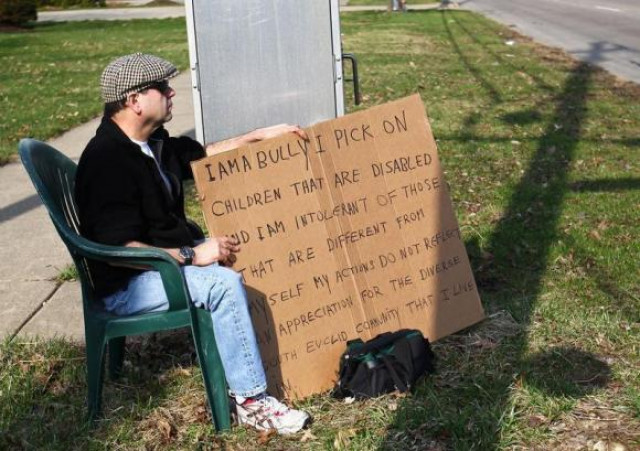 I AM A BULLY I PICK ON
CHILDREN THAT ARE DISABLED
AND I AM INTOLERANT OF THOSE
THAT ARE DIFFERENT FROM
MYSELF MY ACTIONS DO NOT REFLECT
AN APPRECIATION FOR THE DIVERSE
SOUTH EUCLID COMMUNITY THAT I LIVE
IN